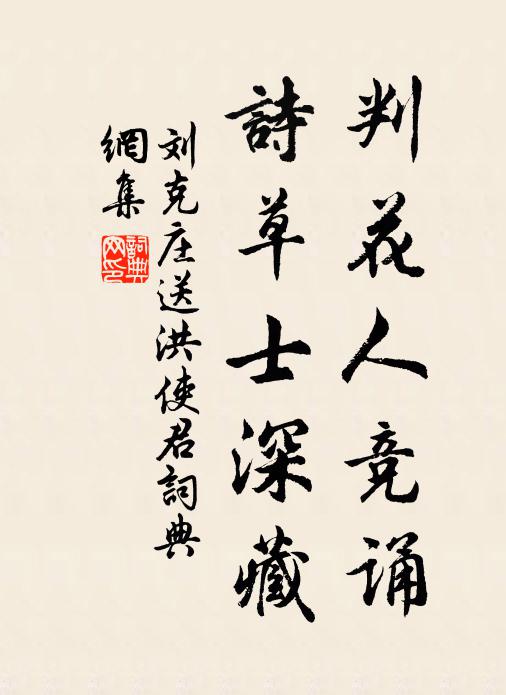 判花人竞诵
詩草士深藏
刘克庄送洪使君詞典
網集
詞典網印